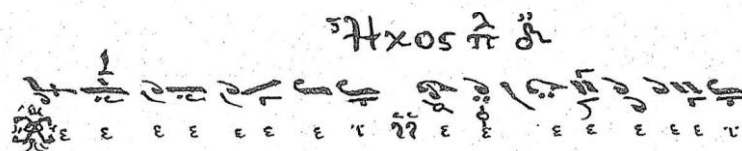 Ἦχος πλ δ
ε ε ε ε ε ε ε τ ε ε ε ε ε ε ε τ